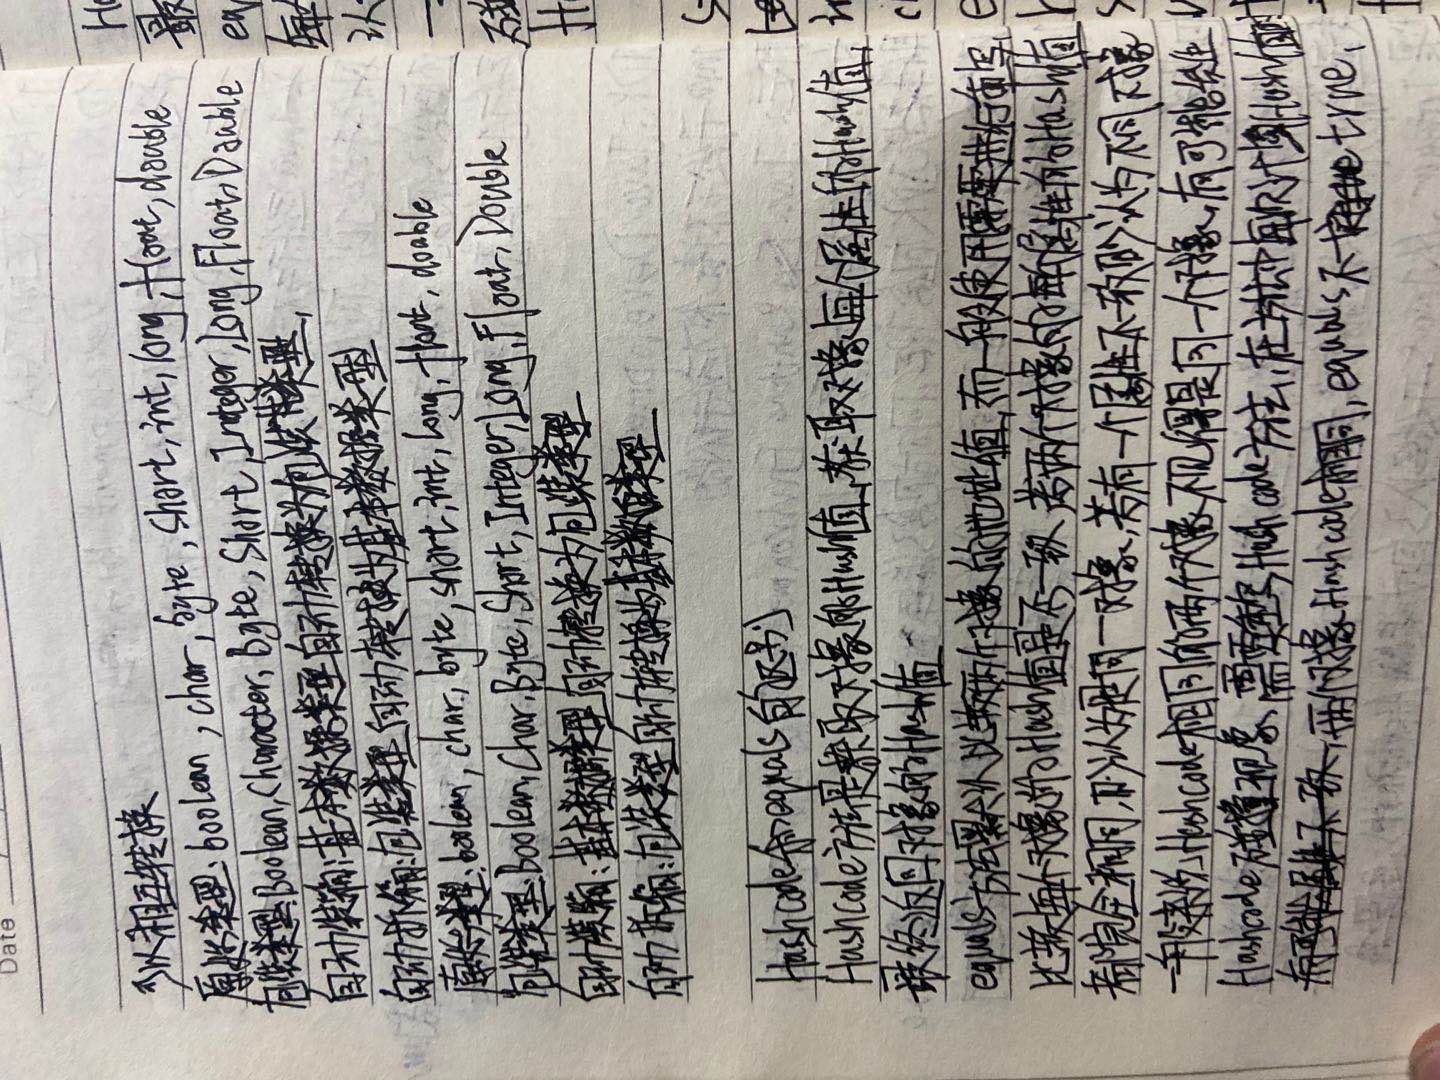 Date
可以相互转换
原始类型:boolean,char,byte,short,int,long,float,double
包装类型:Boolean,Character,Byte,Short,Integer,Long,Float,Double
自动装箱:基本数据类型自动转换为包装类型,
自动拆箱:包装类型自动转换为基本数据类型
原始类型:boolean,char,byte,short,int,long,float,double
包装类型:Boolean,Char,Byte,Short,Integer,Long,Float,Double
自动装箱:基本数据类型自动转换为包装类型
自动拆箱:包装类型自动转换为基本数据类型
Hashcode和equals的区别
Hashcode方法是获取对象的Hash值,获取对象每个属性的Hash值,
最终返回对象的Hash值
equals方法默认比较两个对象的地址值,而一般使用需要进行重写,
比较每个对象的Hash值是不一致 若两个对象的每个属性的Hash值
都完全相同,则认为是同一对象,若有一个属性不一致则认为不同对象
一般来说,Hashcode相同的两个对象不见得是同一个对象,有可能发生
Hashcode碰撞现象,需要重写Hashcode方法,在方法中每次计算Hash值时
两个对象Hashcode相同,equals不一定true,